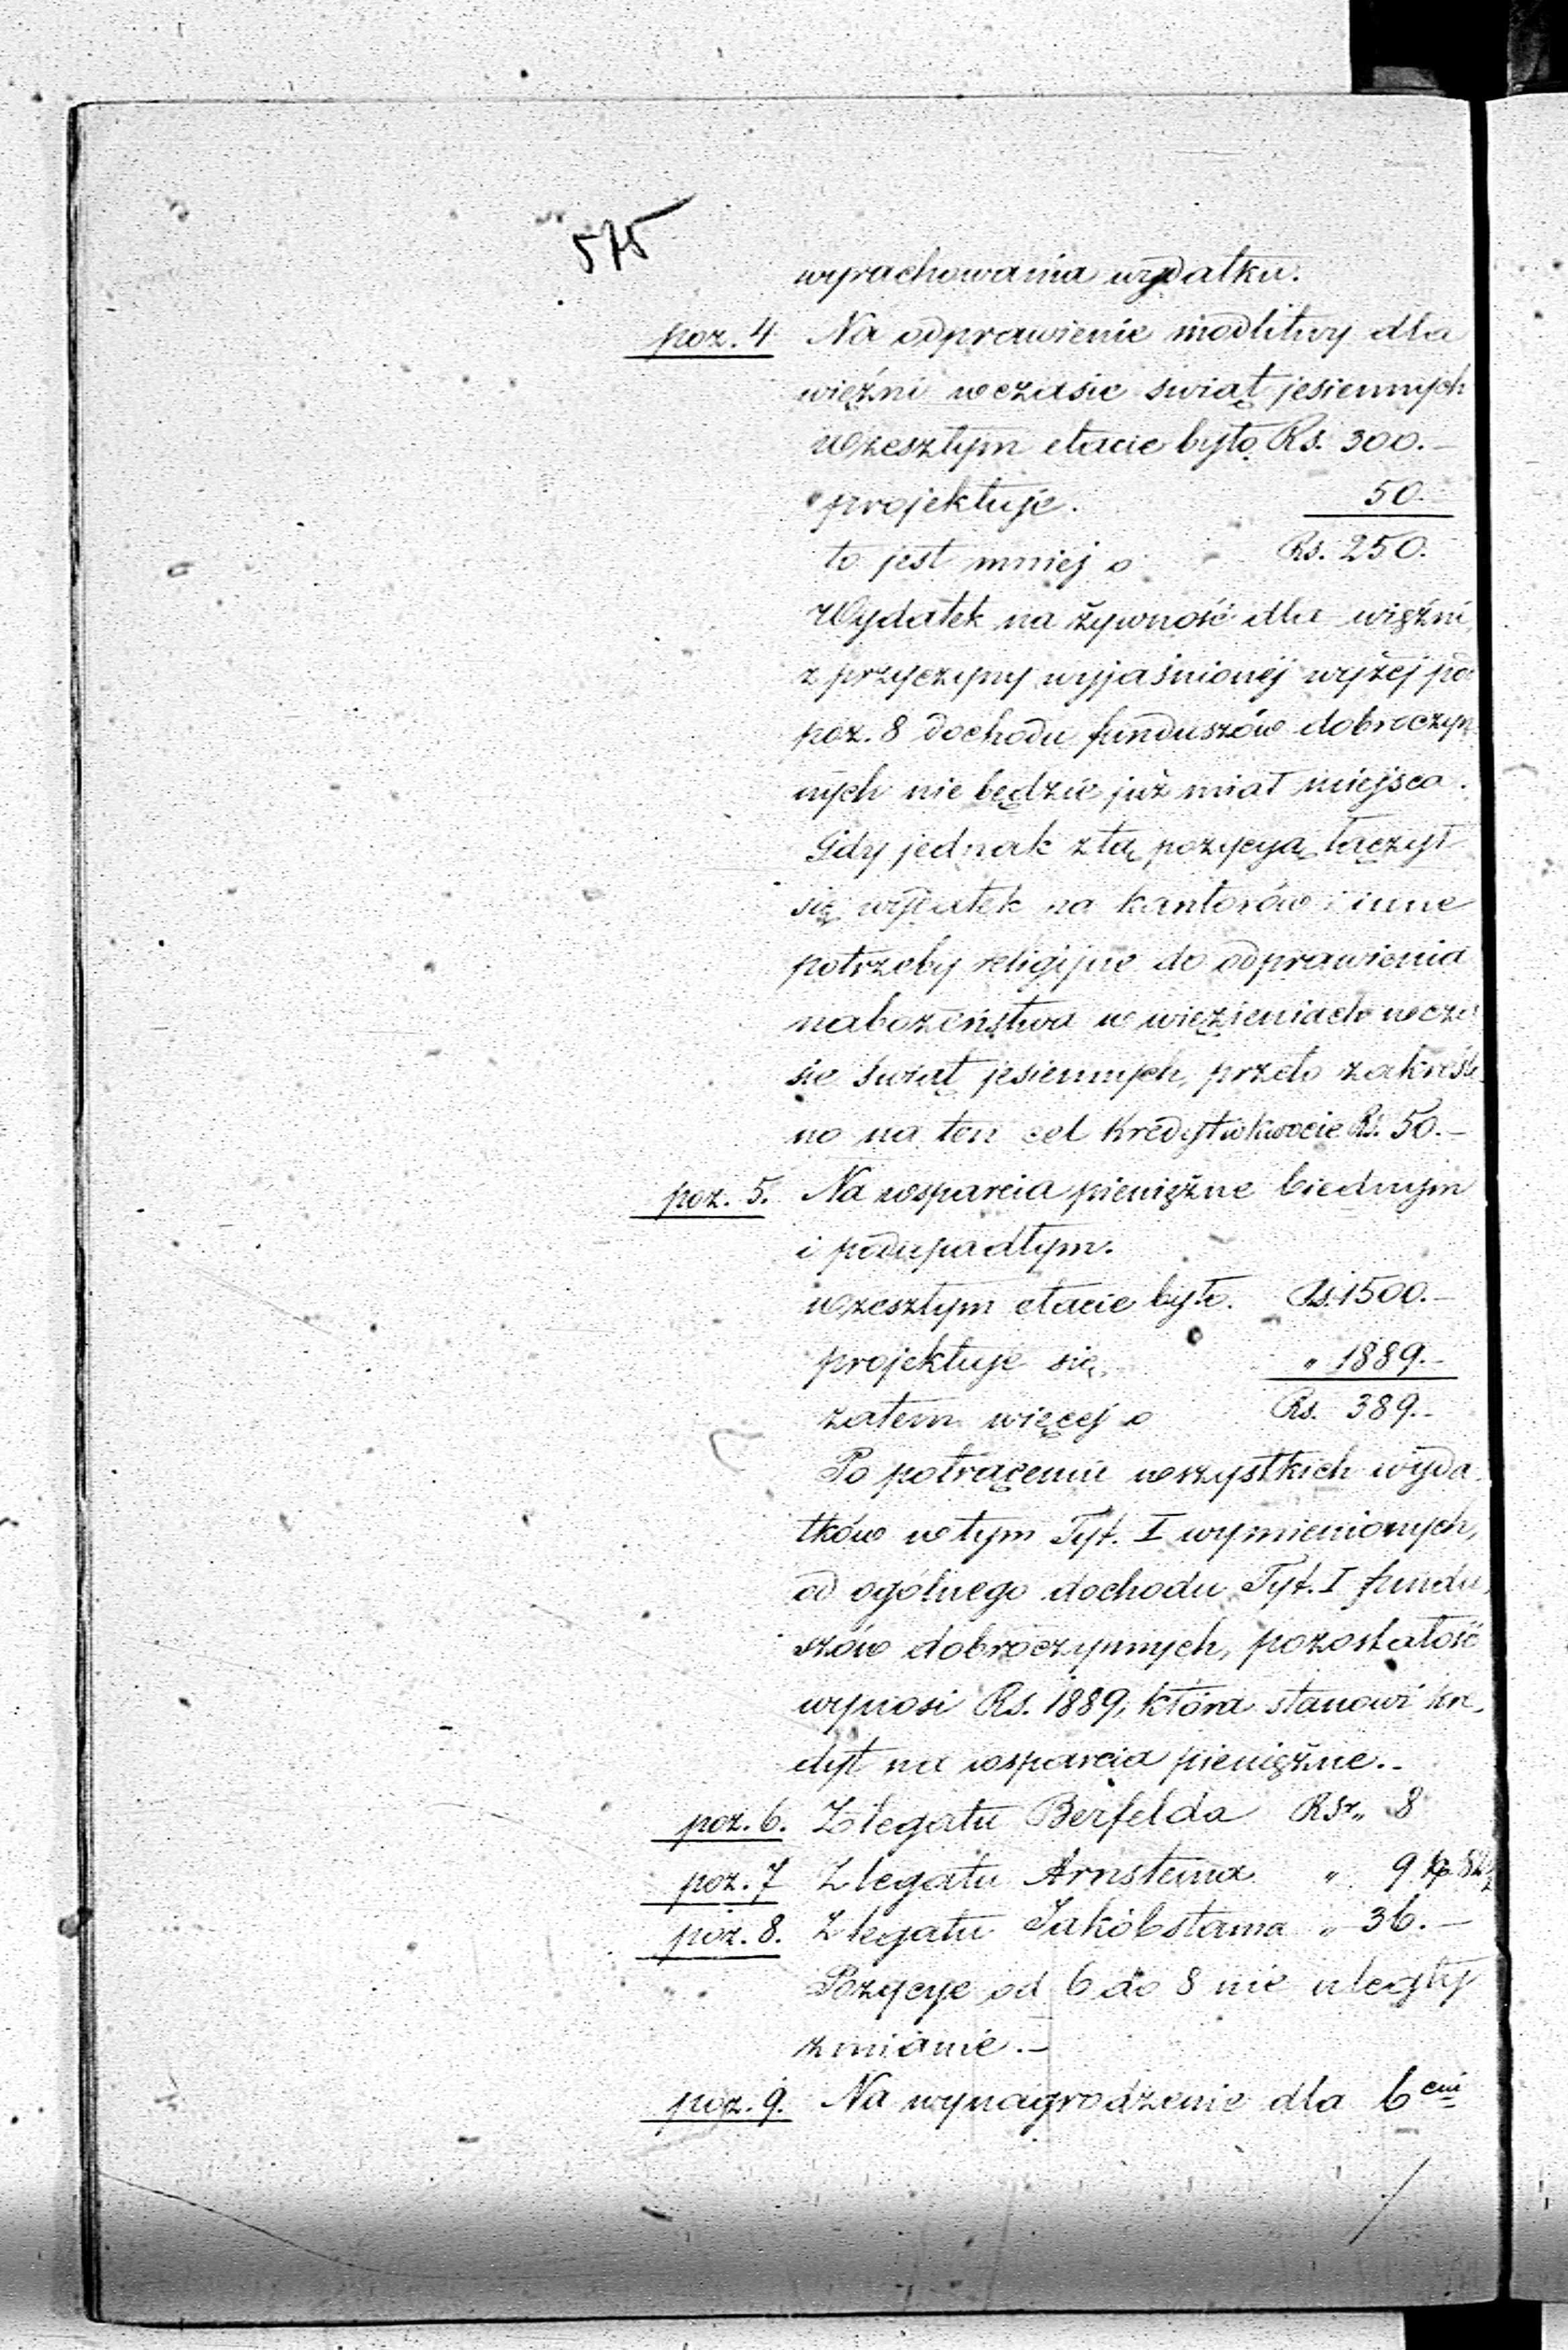 575
wyrachowania wydatku.
poz. 4 Na odprawienie modlitwy dla
więźni w czasie swiąt jesiennych
w zeszłym etacie było Rs. 300.-
projektuje. 50.
to jest mniej o Rs. 250.
Wydatek na żywność dla więźni,
z przyczyny wyjaśnionéj wyżéj pod
poz. 8 dochodu funduszów dobroczyn
nych nie będzie już miał miejsca.
Gdy jednak z tą pozycyą łączył
się wydatek na kantorów i inne
potrzeby religijne do odprawienia
nabożeństwa w więzieniach w cza
sie świąt jesiennych, przeto zakreślo
no na ten cel kredyt w kwocie Rs. 50.-
poz. 5. Na wsparcia pieniężne biednym
i podupadłym.
w zeszłym etacie było. Rs. 1500.-
projektuje się " 1889.-
zatem więcej o Rs. 389.-
Po potrąceniu wszystkich wyda
tków w tym Tyt. I wymienionych,
od ogólnego dochodu Tyt. I fundu
szów dobroczynnych, pozostałość
wynosi Rs. 1889, która stanowi kre
dyt na wsparcia pieniężne.-
poz. 6. Z legatu Berfelda Rsr. 8
poz. 7 Z legatu Arnsteina " 9 kp.
poz. 8. Z legatu Jakóbstama " 36.-
Pozycye od 6 do 8 nie uległy
zmianie.-
poz. 9. Na wynagrodzenie dla 6ciu